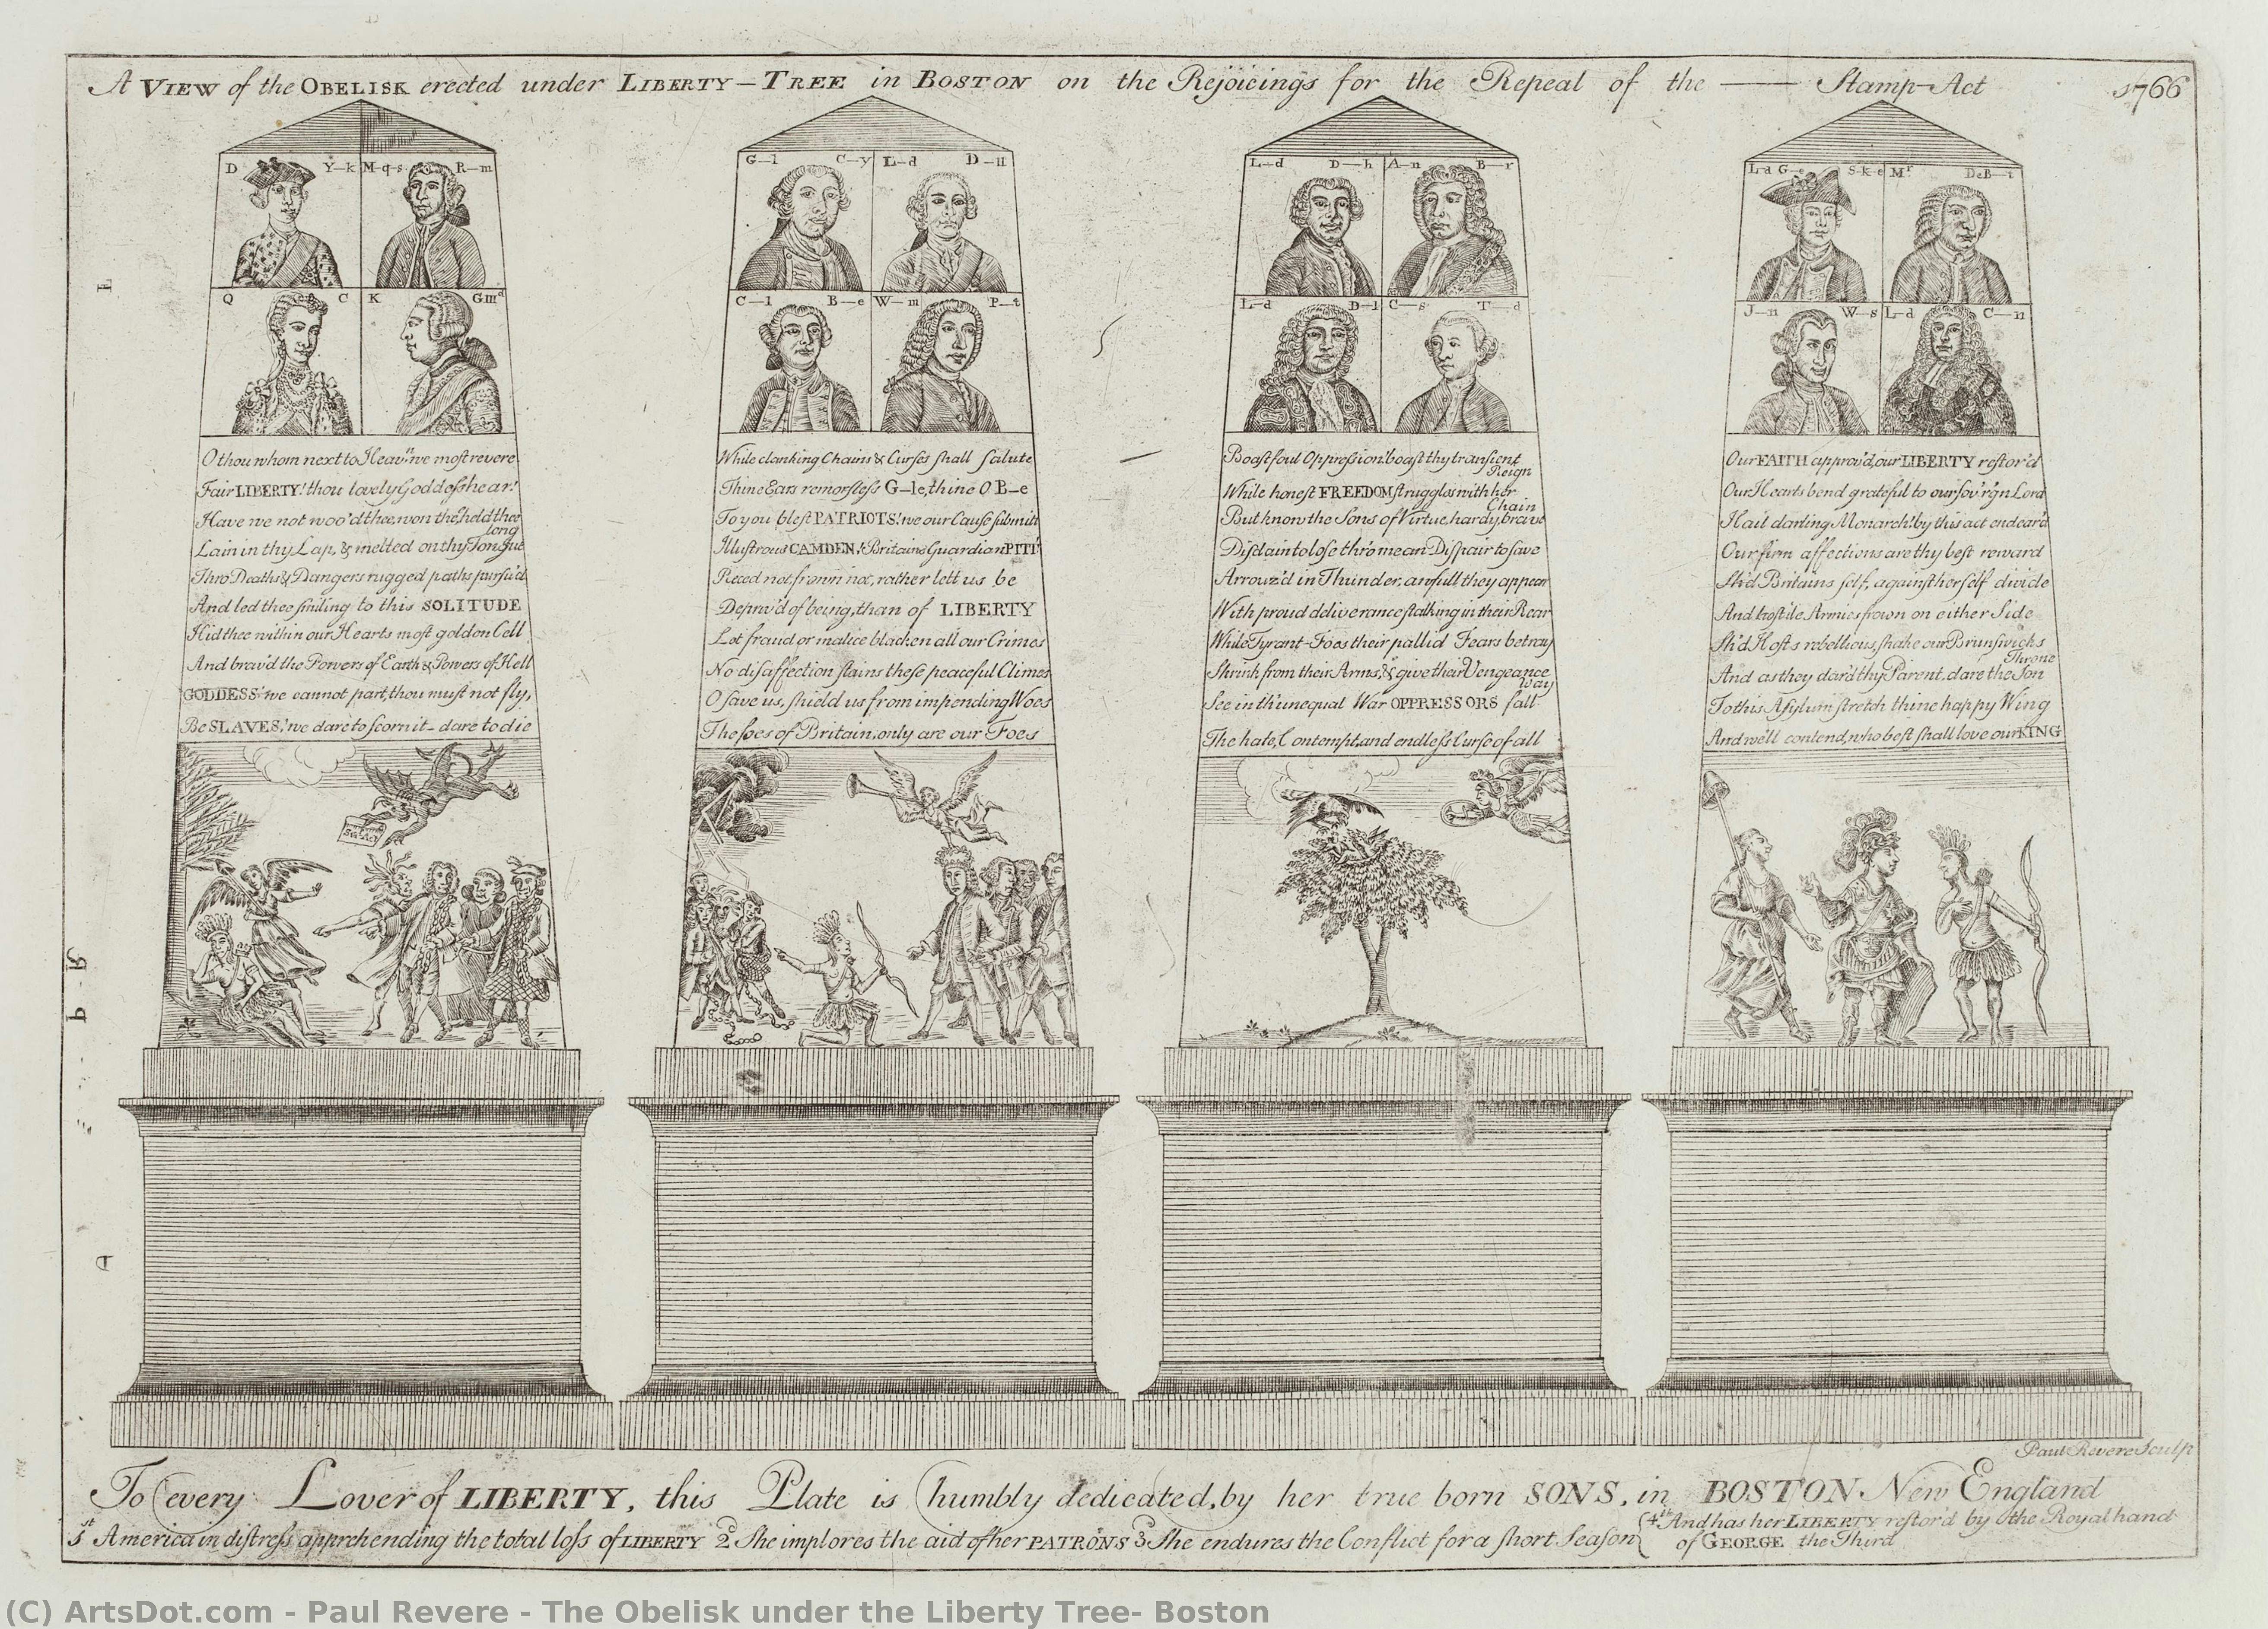 A VIEW of the OBELISK erected under LIBERTY-TREE in BOSTON on the Rejoicings for the Repeal of the —— Stamp-Act 1766
D Y—k M-q-s R—m
Q C K G IIId
O thou whom next to Heav'n we most revere
Fair LIBERTY! thou lovely Goddess hear!
Have we not woo'd thee, won thee, held thee long
Lain in thy Lap, & melted on thy Tongue
Thro Deaths & Dangers rugged paths pursu'd
And led thee smiling to this SOLITUDE
Hid thee within our Hearts most golden Cell
And brav'd the Powers of Earth & Powers of Hell
GODDESS! we cannot part, thou must not fly,
Be SLAVES! we dare to scorn it - dare to die
G—l C—y L—d D—tt
C—l B—e W—m P—t
While clanking Chains & Curses shall salute
Thine Ears remorsless G—le, thine O B—e
To you blest PATRIOTS! we our Cause submit
Illustrous CAMDEN! Britains Guardian PITT!
Reced not, frown not, rather lett us be
Depriv'd of being, than of LIBERTY
Let fraud or malice blacken all our Crimes
No disaffection stains these peaceful Climes
O save us, shield us from impending Woes
The foes of Britain, only are our Foes
L—d D—h A—n B—r
L—d D—l C—s T—d
Boast foul Oppression! boast thy transient Reign
While honest FREEDOM struggles with her Chain
But know the Sons of Virtue, hardy, brave
Disdain to lose thro mean Dispair to save
Arrouz'd in Thunder, awfull they appear
With proud deliverance stalking in their Rear
While Tyrant-Foes their pallid Fears betray
Shrink from their Arms, & give their Vengeance way
See in th' unequal War OPPRESSORS fall
The hate, Contempt, and endless Curse of all
L—d G—e S-k-e Mr DeB—t
J—n W—s L—d C—n
Our FAITH approv'd, our LIBERTY restor'd
Our Hearts bend grateful to our sov'r'gn Lord
Hail darling Monarch! by this act endear'd
Our firm affections are thy best reward
Sh'd Britains self, against herself divide
And hostile Armies frown on either Side
Sh'd Hosts rebellious, shake our Brunswick's Throne
And as they dar'd thy Parent, dare the Son
To this Asylum stretch thine happy Wing
And we'll contend, who best shall love our KING
Paul Revere Sculp
To every Lover of LIBERTY, this Plate is humbly dedicated, by her true born SONS, in BOSTON New England
1st America in distress apprehending the total loss of LIBERTY 2d She implores the aid of her PATRONS 3d She endures the Conflict for a short Season 4th And has her LIBERTY restor'd by the Royal hand of GEORGE the Third
(C) ArtsDot.com - Paul Revere - The Obelisk under the Liberty Tree- Boston